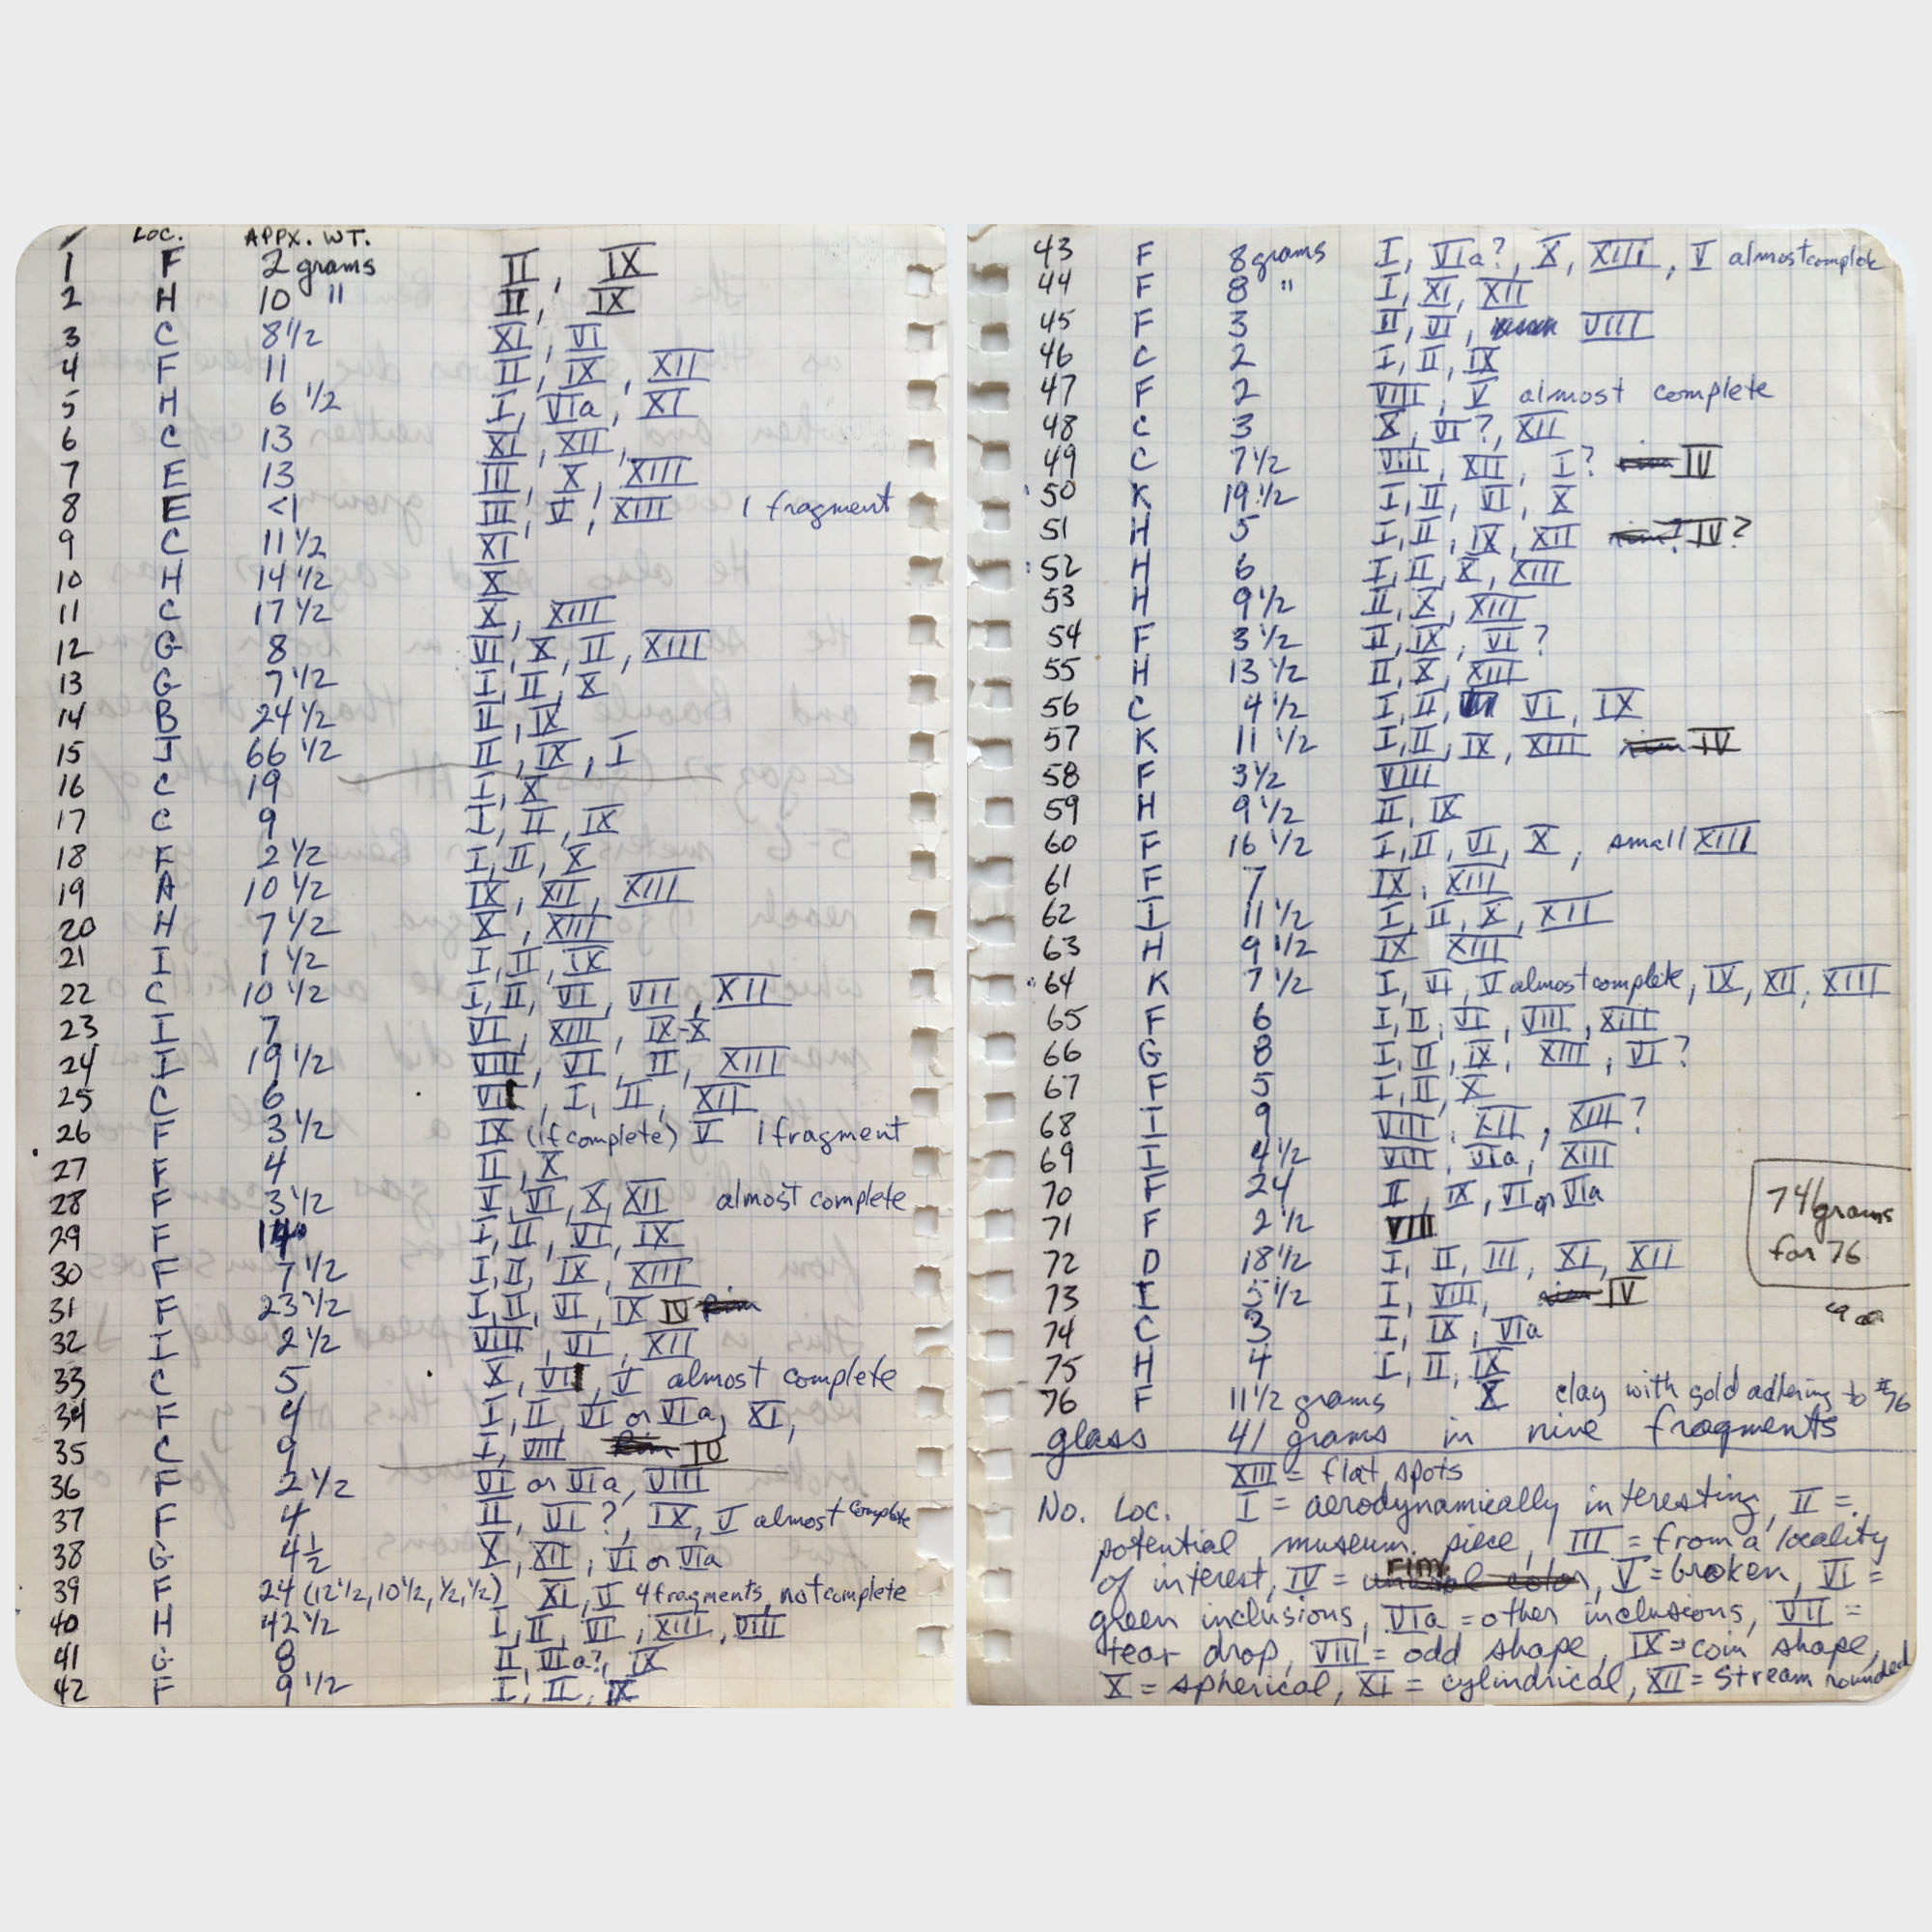 LOC. APPX. WT.
1 F 2 grams II, IX
2 H 10 " II, IX
3 C 8 1/2 XI, VI
4 F 11 II, IX, XII
5 H 6 1/2 I, VIa, XI
6 C 13 XI, XII,
7 E 13 III, X, XIII
8 E <1 III, V, XIII 1 fragment
9 C 11 1/2 XI
10 H 14 1/2 X
11 C 17 1/2 X, XIII
12 G 8 VI, X, II, XIII
13 G 7 1/2 I, II, X
14 B 24 1/2 II, IX
15 J 66 1/2 II, IX, I
16 C 19 I, X
17 C 9 I, II, IX
18 F 2 1/2 I, II, X
19 A 10 1/2 IX, XII, XIII
20 H 7 1/2 X, XIII
21 I 1 1/2 I, II, IX
22 C 10 1/2 I, II, VI, VII, XII
23 I 7 VI, XIII, IX-X
24 I 19 1/2 VIII, VI, II, XIII
25 C 6 , I, II, XII
26 F 3 1/2 IX (if complete) V 1 fragment
27 F 4 II, X
28 F 3 1/2 V, VI, X, XII almost complete
29 F 14 I, II, VI, IX
30 F 7 1/2 I, II, IX, XIII
31 F 23 1/2 I, II, VI, IX IV rim
32 I 2 1/2 VIII, VI, XII
33 C 5 X, , V almost complete
34 F 4 I, II, VI or VIa, XI,
35 C 9 I, VIII rim IV
36 F 2 1/2 VI or VIa, VIII
37 F 4 II, VI?, IX, V almost complete
38 G 4 1/2 X, XII, VI or VIa
39 F 24 (12 1/2, 10 1/2, 1/2, 1/2) XI, V 4 fragments, not complete
40 H 42 1/2 I, II, VI, XIII, VIII
41 G 8 II, VIa?, IX
42 F 9 1/2 I, II, IX
43 F 8 grams I, VIa?, X, XIII, V almost complete
44 F 8 " I, XI, XII
45 F 3 II, VI, VIII
46 C 2 I, II, IX
47 F 2 VIII, V almost complete
48 C 3 X, VI?, XII
49 C 7 1/2 VIII, XII, I? rim IV
50 K 19 1/2 I, II, VI, X
51 H 5 I, II, IX, XII rim? IV?
52 H 6 I, II, X, XIII
53 H 9 1/2 II, X, XIII
54 F 3 1/2 II, IX, VI?
55 H 13 1/2 II, X, XIII
56 C 4 1/2 I, II, VI, IX
57 K 11 1/2 I, II, IX, XIII rim IV
58 F 3 1/2 VIII
59 H 9 1/2 II, IX
60 F 16 1/2 I, II, VI, X, small XIII
61 F 7 IX, XIII
62 I 11 1/2 I, II, X, XII
63 H 9 1/2 IX XIII
64 K 7 1/2 I, VI, V almost complete, IX, XII, XIII
65 F 6 I, II, VI, VIII, XIII
66 G 8 I, II, IX, XIII, VI?
67 F 5 I, II, X
68 I 9 VIII, XII, XIII?
69 I 4 1/2 VIII, VIa, XIII
70 F 24 II, IX, VI or VIa
71 F 2 1/2 VIII
72 D 18 1/2 I, II, III, XI, XII
73 I 5 1/2 I, VIII, rim IV
74 C 3 I, IX, VIa
75 H 4 I, II, IX
76 F 11 1/2 grams X clay with gold adhering to #76
746 grams
for 76
glass 41 grams in nine fragments
XIII = flat spots
No. Loc. I = aerodynamically interesting, II =
potential museum piece, III = from a locality
of interest, IV = rim unusual color, V = broken, VI =
green inclusions, VIa = other inclusions, VII =
tear drop, VIII = odd shape, IX = coin shape,
X = spherical, XI = cylindrical, XII = stream rounded